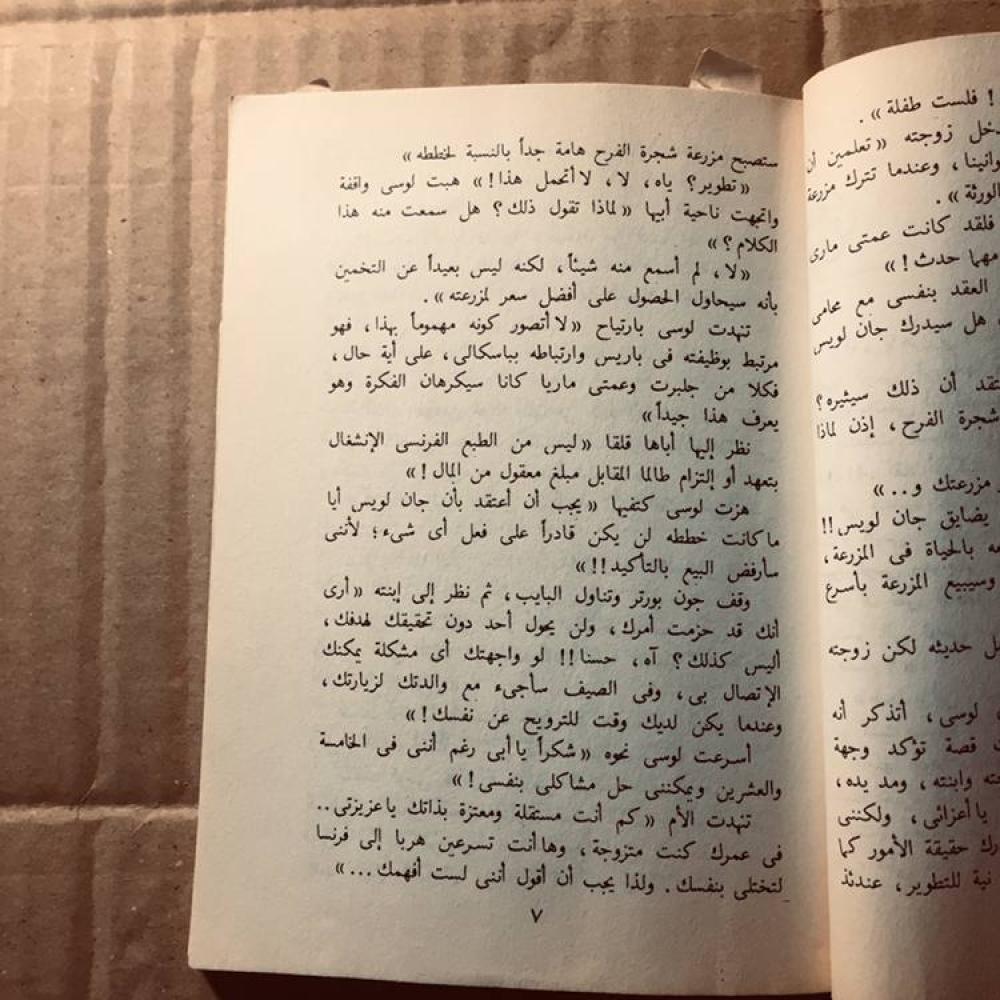 ! فلست طفلة» .
زوجته «تعلمين أن
، وعندما تترك مزرعة
الورثة» .
فلقد كانت عمتى مارى
مهما حدث ! »
العقد بنفسى مع محامى
هل سيدرك جان لويس
أن ذلك سيثيره ؟
شجرة الفرح ، إذن لماذا
مزرعتك و.. »
يضايق جان لويس !!
بالحياة فى المزرعة ،
وسيبيع المزرعة بأسرع
حديثه لكن زوجته
لوسى ، أتذكر أنه
قصة تؤكد وجهة
وابنته ، ومد يده ،
يا أعزائى ، ولكننى
حقيقة الأمور كما
نية للتطوير ، عندئذ
ستصبح مزرعة شجرة الفرح هامة جداً بالنسبة لخططه »
« تطوير ؟ ياه ، لا ، لا أتحمل هذا ! » هبت لوسى واقفة
واتجهت ناحية أبيها « لماذا تقول ذلك ؟ هل سمعت منه هذا
الكلام ؟ »
« لا ، لم أسمع منه شيئاً ، لكنه ليس بعيداً عن التخمين
بأنه سيحاول الحصول على أفضل سعر لمزرعته » .
تنهدت لوسى بارتياح « لا أتصور كونه مهموماً بهذا ، فهو
مرتبط بوظيفته فى باريس وارتباطه بباسكالى ، على أية حال ،
فكلا من جلبرت وعمتى ماريا كانا سيكرهان الفكرة وهو
يعرف هذا جيداً »
نظر إليها أباها قلقا « ليس من الطبع الفرنسى الإنشغال
بتعهد أو إلتزام طالما المقابل مبلغ معقول من المال ! »
هزت لوسى كتفيها « يجب أن أعتقد بأن جان لويس أيا
ما كانت خططه لن يكن قادراً على فعل أى شىء ؛ لأننى
سأرفض البيع بالتأكيد !! »
وقف جون بورتر وتناول البايب ، ثم نظر إلى إبنته « أرى
أنك قد حزمت أمرك ، ولن يحول أحد دون تحقيقك لهدفك ،
أليس كذلك ؟ آه ، حسنا !! لو واجهتك أى مشكلة يمكنك
الإتصال بى ، وفى الصيف سأجىء مع والدتك لزيارتك ،
وعندما يكن لديك وقت للترويح عن نفسك ! »
أسرعت لوسى نحوه « شكراً يا أبى رغم أننى فى الخامسة
والعشرين ويمكننى حل مشاكلى بنفسى ! »
تنهدت الأم « كم أنت مستقلة ومعتزة بذاتك يا عزيزتى ..
فى عمرك كنت متزوجة ، وها أنت تسرعين هربا إلى فرنسا
لتختلى بنفسك . ولذا يجب أن أقول أننى لست أفهمك ... »
٧